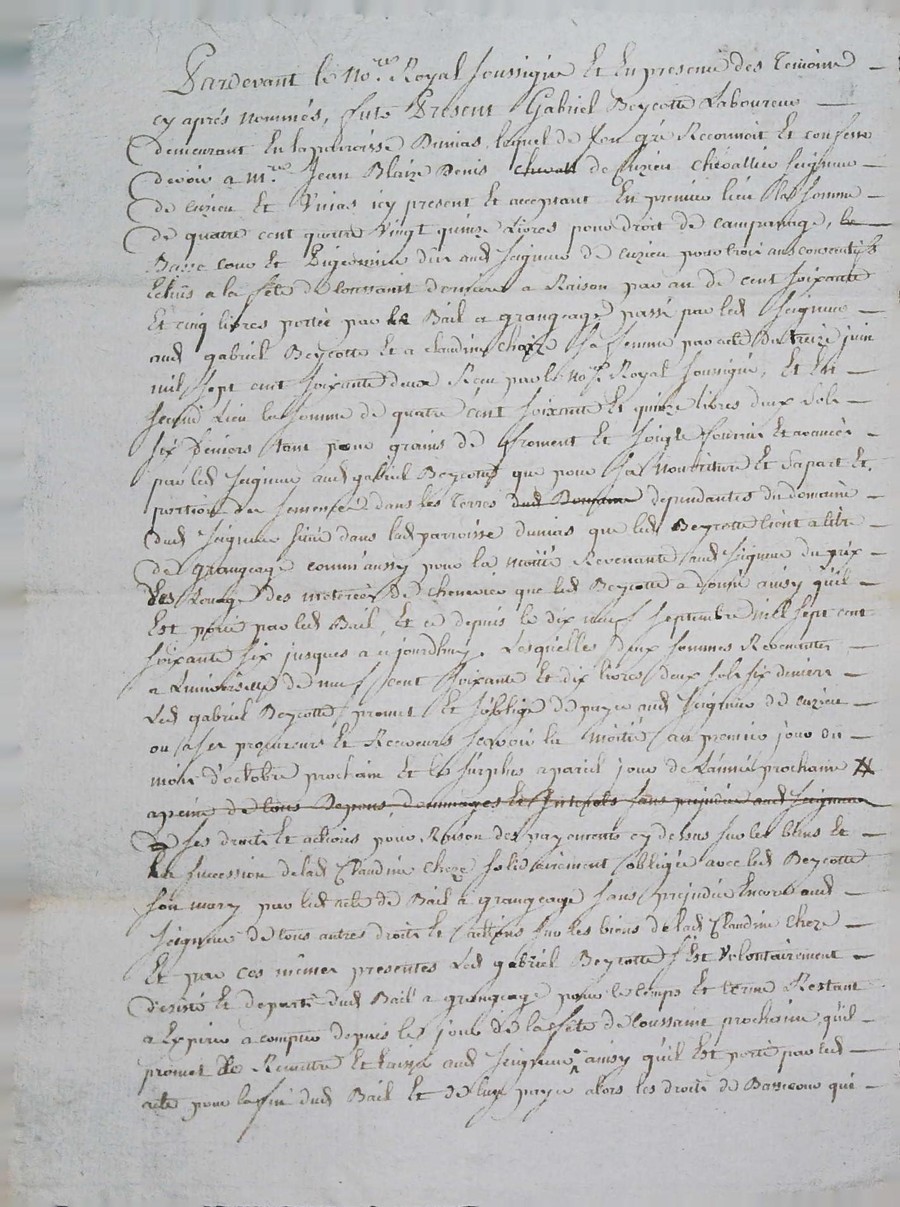 Pardevant le No.re Royal soussigné Et En presence des temoins
cy aprés nommés, fute Present Gabriel Beycotte Laboureur
demeurant En laparroisse Dunias, lequel de son gré Reconnoit Et confesse
devoir a M.re Jean Blaize Denis de Curieu chevallier seigneur
de curieu Et Unias icy present Et acceptant En premier lieu la somme
de quatre cent quatre vingt quinze Livres pour droit de
Basse cour Et Pigeonnier dus aud seigneur de curieu pour trois ans consecutifs
Echus a la fête de toussaint derniere a Raison par an de cent soixante
Et cinq livres portée par le Bail a grangeage passé par led seigneur
aud gabriel Beycotte Et a claudine cheze sa femme par acte du treize juin
mil sept cent soixante deux Reçu par le No.re Royal soussigné, Et En
second Lieu la somme de quatre cent soixante Et quinze livres deux sols
six deniers tant pour grains de froment Et seigle fournis Et avancés
par led seigneur aud gabriel Beycotte que pour sa nourriture Et sa part Et
portion des semences dans les terres dud Domaine dependantes du domaine
dud seigneur situé dans lad parroisse dunias que led Beycotte tient a titre
de grangeage comm'aussy pour la moitié Revenante aud seigneur du prix
des Louage des meterées de cheneviere que led Beycotte a donné ainsy qu'il
Est porté par led Bail, Et ce depuis le dix neuf septembre mil sept cent
soixante six jusques a cejourdhuy. Lesquelles deux sommes Revenantes
a Luniverselle de neuf cent soixante Et dix livres deux sols six deniers
Led gabriel Beycotte promet Et s'oblige de payer aud seigneur de curieu
ou a ses procureurs Et Receveurs sçavoir la moitié au premier jour du
mois d'octobre prochain Et le surplus a pareil jour de l'année prochaine
apeine de tous Depens, dommages Et Interests sans prejudice aud seigneur
de ses droits Et actions pour Raison des payements cy dessus sur les biens Et
la succession de lad Claudine Cheze solidairement obligée avec led Beycotte
son mary par led acte de Bail a grangeage sans prejudice Encore aud
seigneur de tous autres droits Et actions sur les biens de lad Claudine Cheze
Et par ces mêmes presentes Led gabriel Beycotte s'Est volontairement
desisté Et departi dud Bail a grangeage pour le temps Et terme Restant
a Expirer a compter depuis le jour de la fête de toussaint prochaine, qu'il
promet de Remettre Et laisser aud seigneur ainsy qu'il Est porté par led
acte pour la fin dud Bail Et de luy payer alors les droits de Bassecour qui